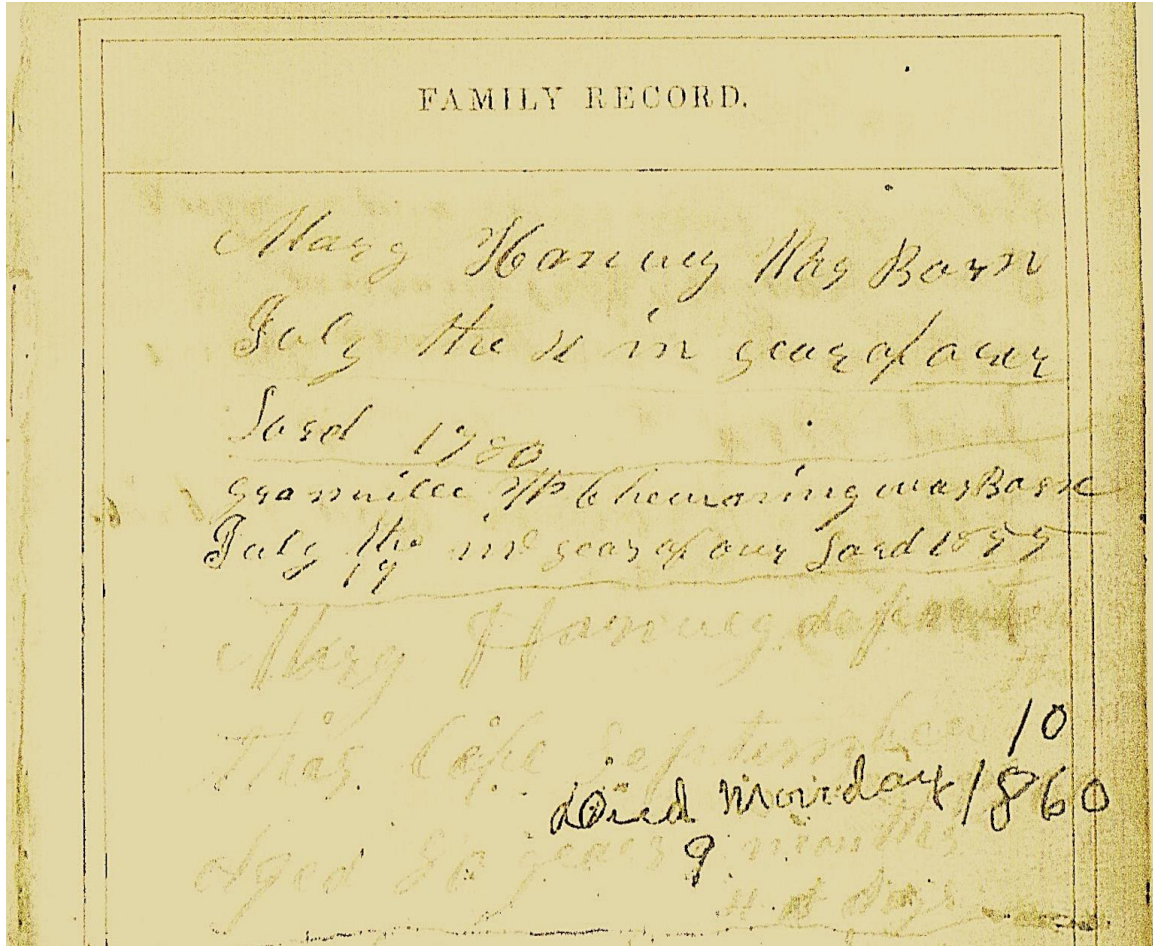 FAMILY RECORD.
Mary Hanuey Was Born
July the 4 in year of ouer
Lord 1780
Granville was Born
July the 17 in year of our Lord 1855
Mary Hanuey departed
this life September 10
Died Monday 1860
Aged 80 years months
9
days